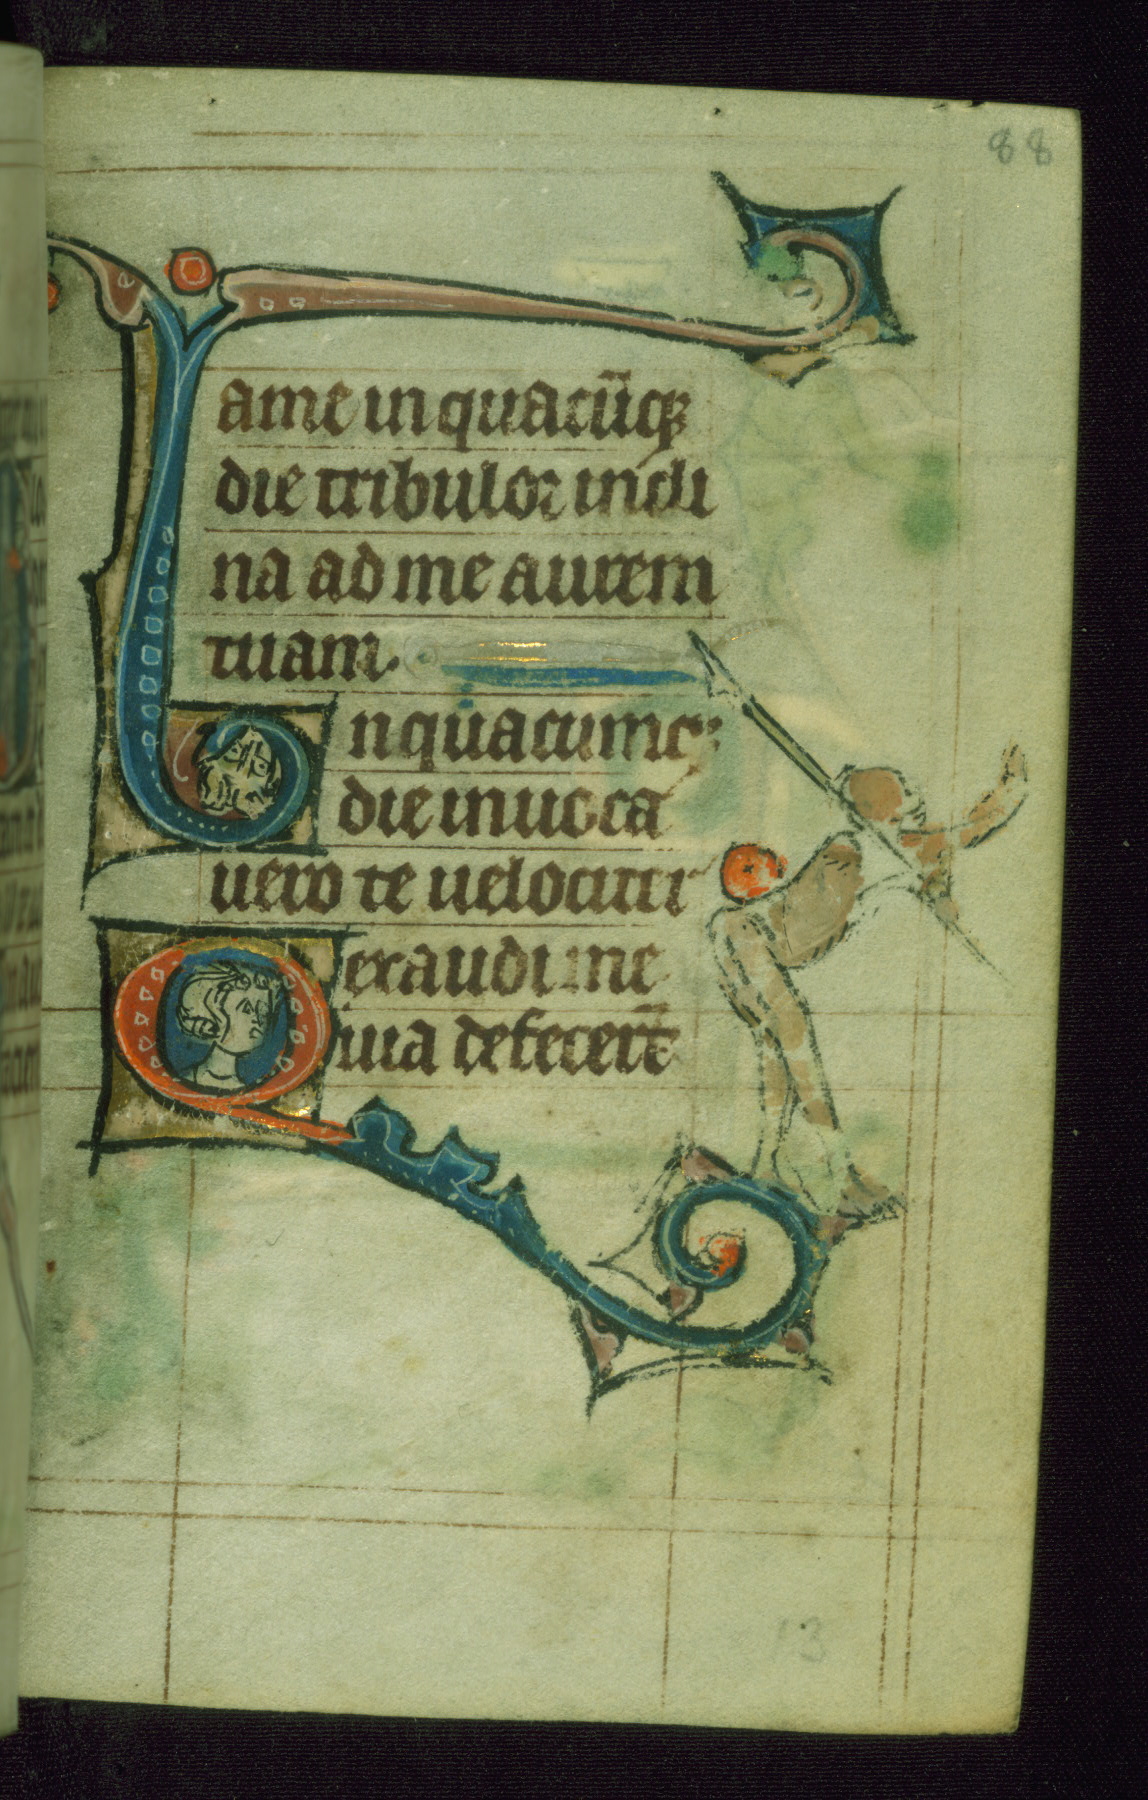 88
a me in quacūqꝫ
die tribulor incli
na ad me aurem
tuam.
In quacumqꝫ
die inuoca
uero te velociter
exaudi me
Quia defecerūt
13